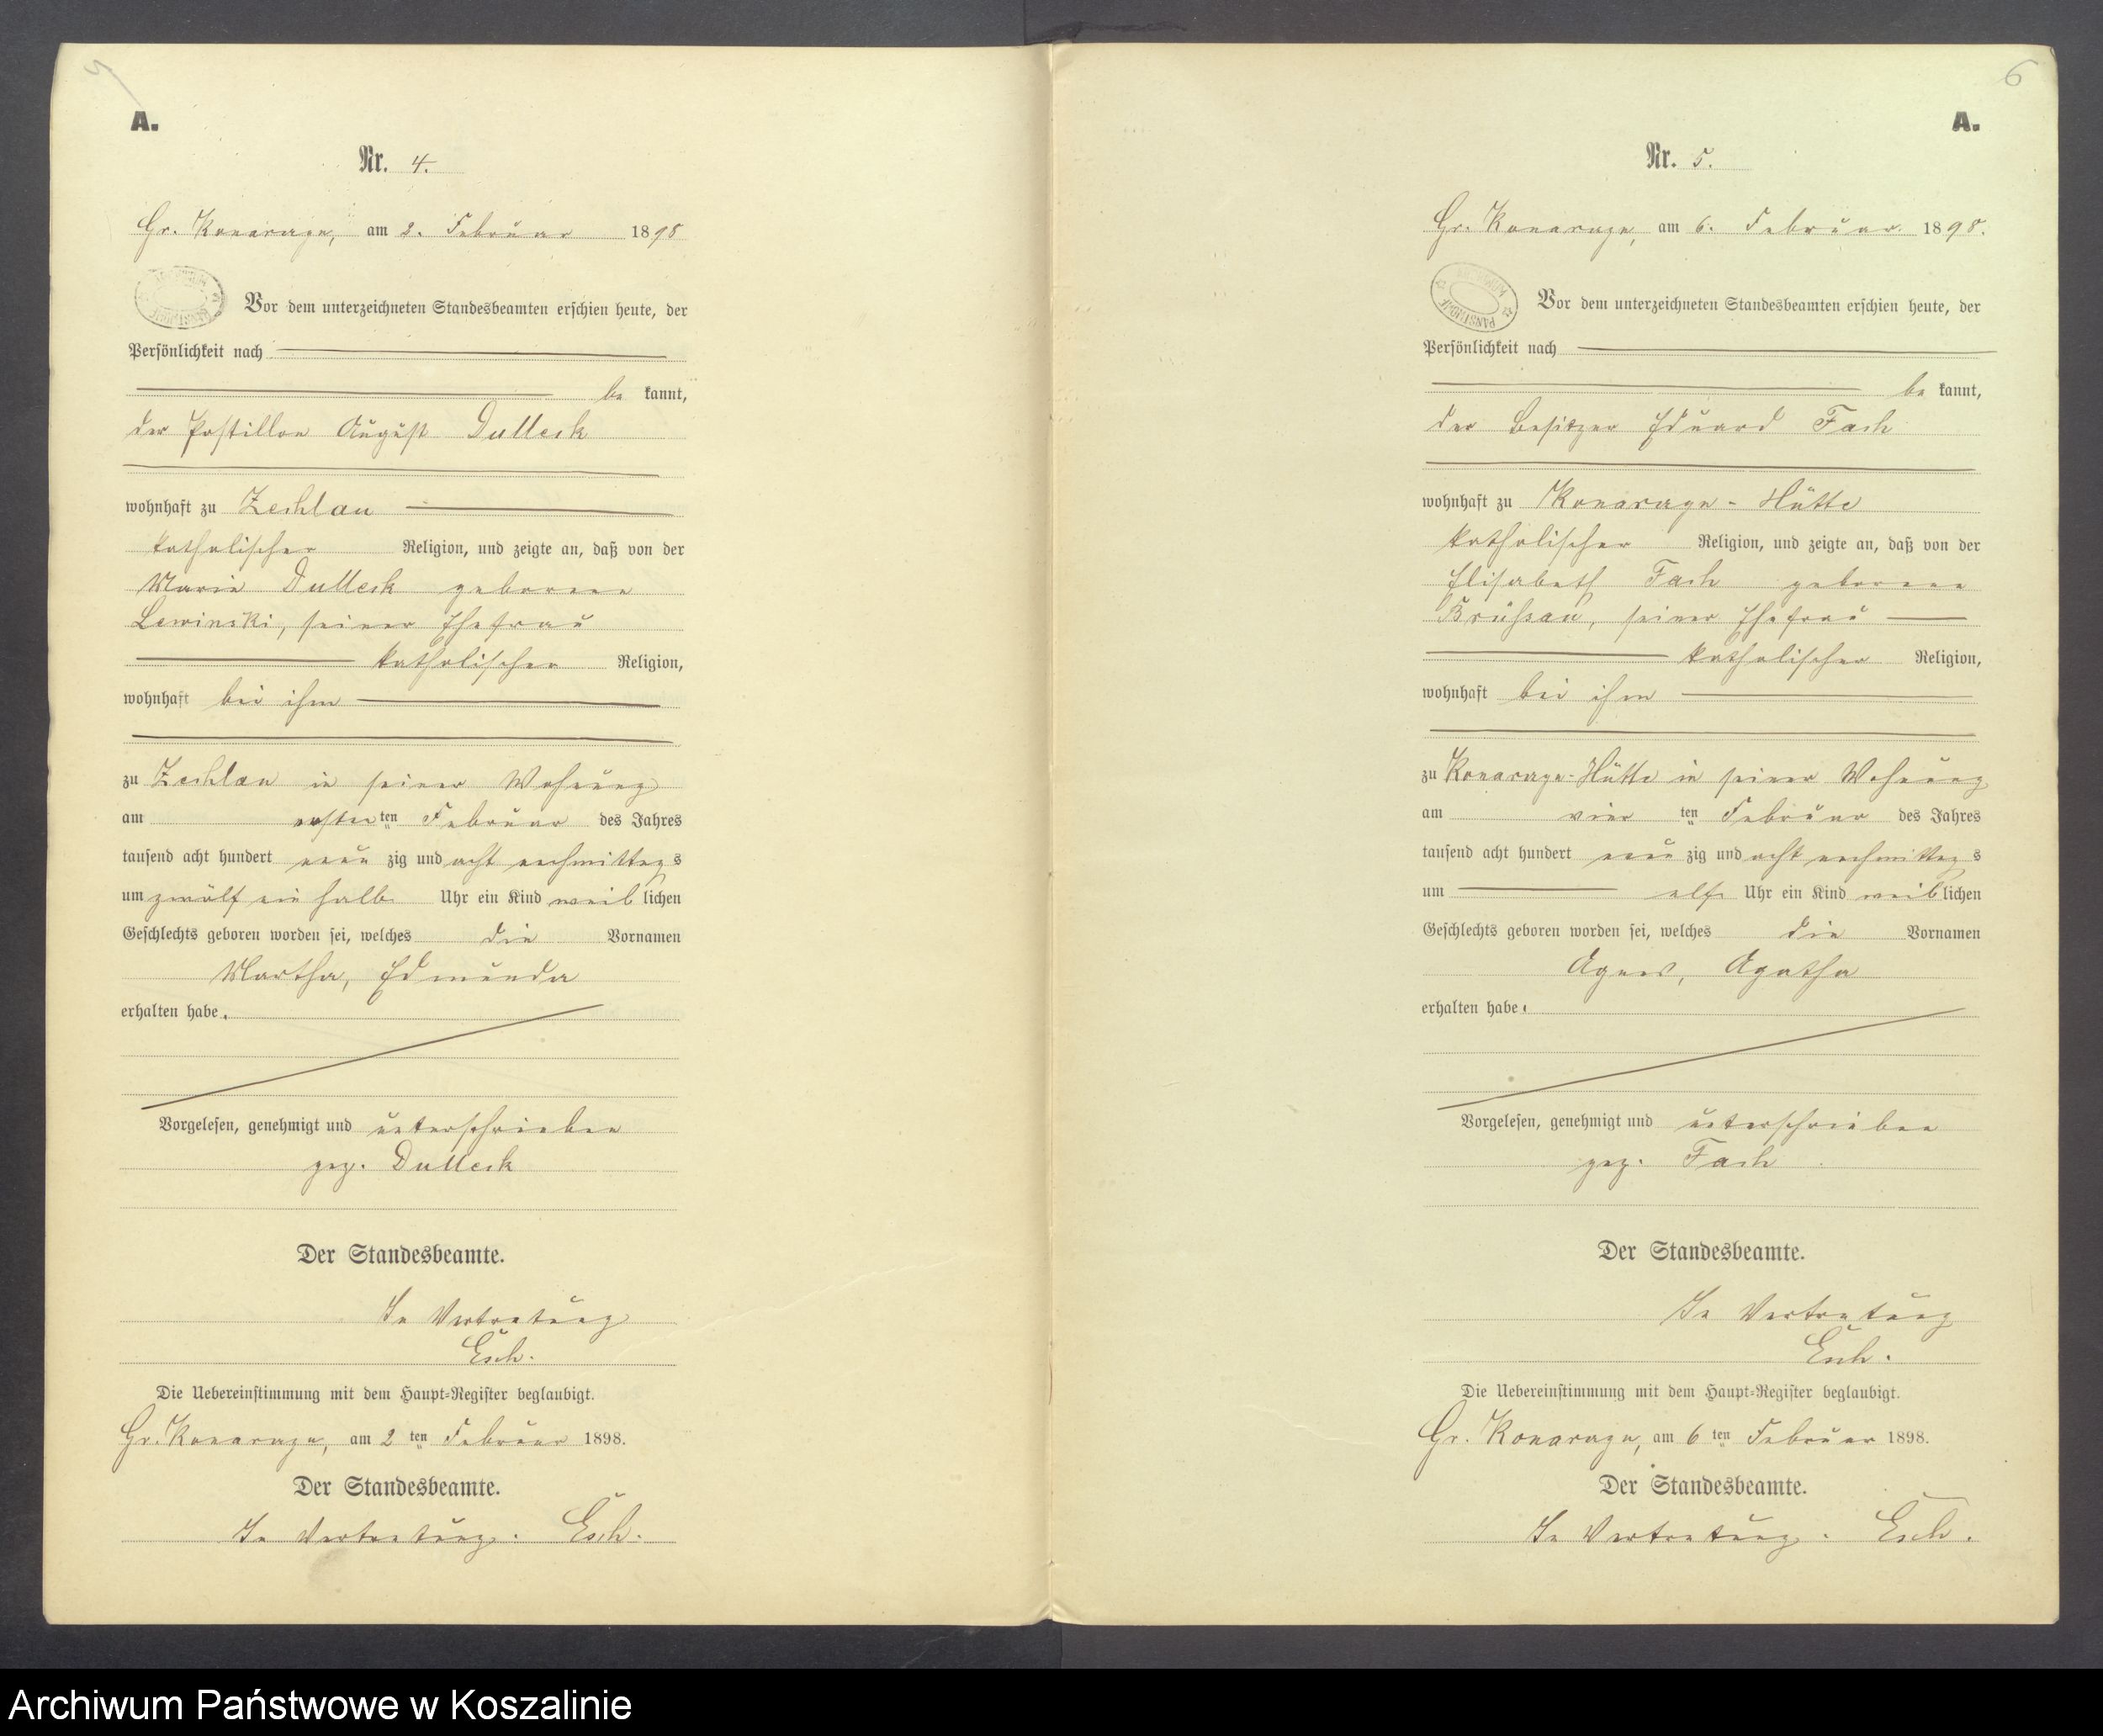 A.
Nr. 4.
Gr. Konarzyn, am 2. Februar 1898
Vor dem unterzeichneten Standesbeamten erschien heute, der
Persönlichkeit nach
be kannt,
der Postillon August Dulleck
wohnhaft zu Zechlau
katholischer Religion, und zeigte an, daß von der
Marie Dulleck geborene
Lewinski, seiner Ehefrau
katholischer Religion,
wohnhaft bei ihm
zu Zechlau in seiner Wohnung
am ersten ten Februar des Jahres
tausend acht hundert neun zig und acht nachmittag s
um zwölf ein halb Uhr ein Kind weib lichen
Geschlechts geboren worden sei, welches die Vornamen
Martha, Edmunda
erhalten habe.
Vorgelesen, genehmigt und unterschrieben
gez. Dulleck
Der Standesbeamte.
In Vertretung
Esch.
Die Uebereinstimmung mit dem Haupt-Register beglaubigt.
Gr. Konarzyn, am 2 ten Februar 1898.
Der Standesbeamte.
In Vertretung. Esch.
6
A.
Nr. 5.
Gr. Konarzyn, am 6. Februar 1898.
Vor dem unterzeichneten Standesbeamten erschien heute, der
Persönlichkeit nach
be kannt,
der Besitzer Eduard Fach
wohnhaft zu Konarzyn-Hütte
katholischer Religion, und zeigte an, daß von der
Elisabeth Fach geborene
seiner Ehefrau
katholischer Religion,
wohnhaft bei ihm
zu Konarzyn-Hütte in seiner Wohnung
am vier ten Februar des Jahres
tausend acht hundert neun zig und acht nachmittag s
um elf Uhr ein Kind weib lichen
Geschlechts geboren worden sei, welches die Vornamen
Agnes, Agatha
erhalten habe.
Vorgelesen, genehmigt und unterschrieben
gez. Fach
Der Standesbeamte.
In Vertretung
Esch.
Die Uebereinstimmung mit dem Haupt-Register beglaubigt.
Gr. Konarzyn, am 6 ten Februar 1898.
Der Standesbeamte.
In Vertretung. Esch.
Archiwum Państwowe w Koszalinie